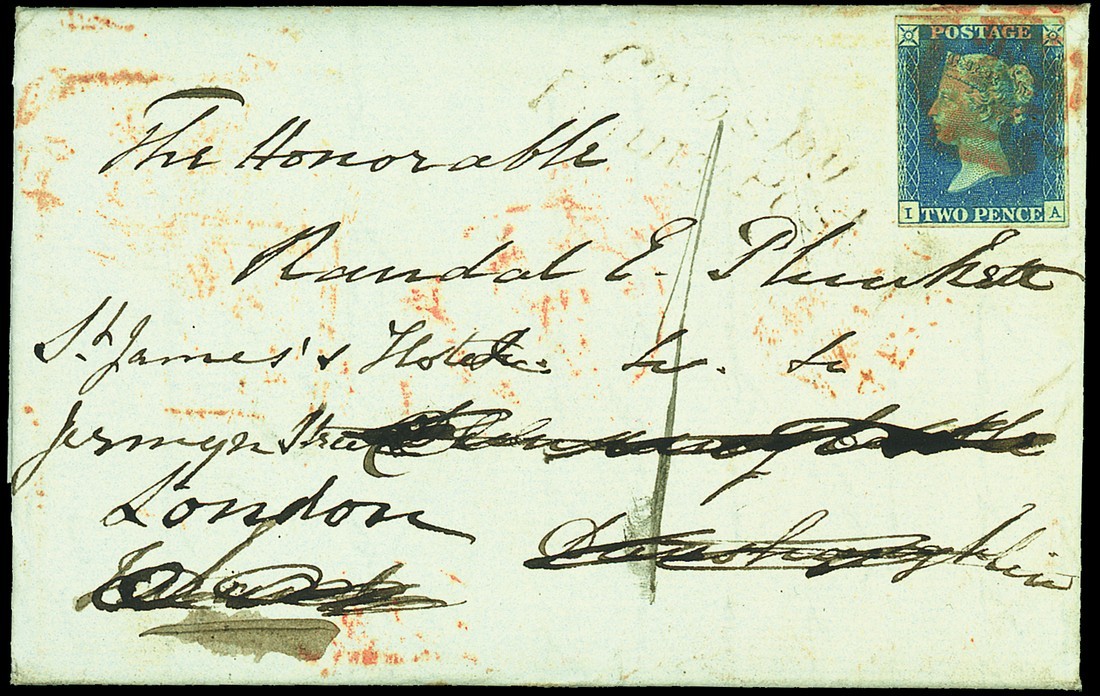 POSTAGE
I TWO PENCE A
The Honorable
Randal E. Plunkett
St James's Hotel &c. &c
Jermyn Street
London
Dunshaughlin
1